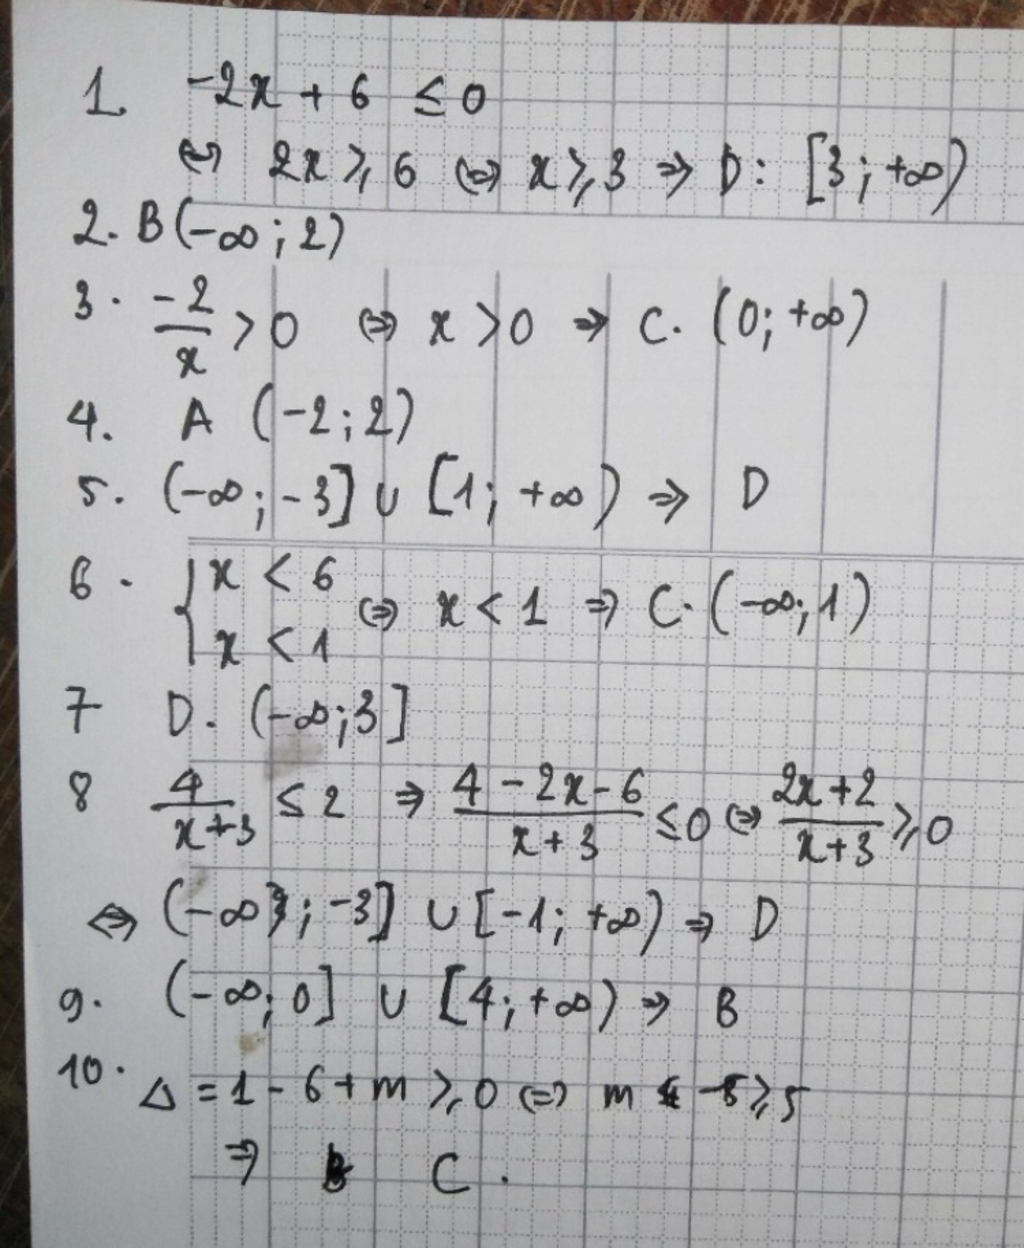 1. -2x + 6 ≤ 0
⇔ 2x ≥ 6 ⇔ x ≥ 3 ⇒ D: [3; +∞)
2. B(-∞; 2)
3. -2/x > 0 ⇔ x > 0 ⇒ C. (0; +∞)
4. A (-2; 2)
5. (-∞; -3] ∪ [1; +∞) ⇒ D
6. { x < 6
x < 1 ⇔ x < 1 ⇒ C. (-∞; 1)
7 D. (-∞; 3]
8 4/(x+3) ≤ 2 ⇒ (4 - 2x - 6)/(x + 3) ≤ 0 ⇔ (2x + 2)/(x + 3) ≥ 0
⇔ (-∞; -3] ∪ [-1; +∞) ⇒ D
9. (-∞; 0] ∪ [4; +∞) ⇒ B
10. Δ = 1 - 6 + m ≥ 0 ⇔ m ≥ 5
⇒ C.